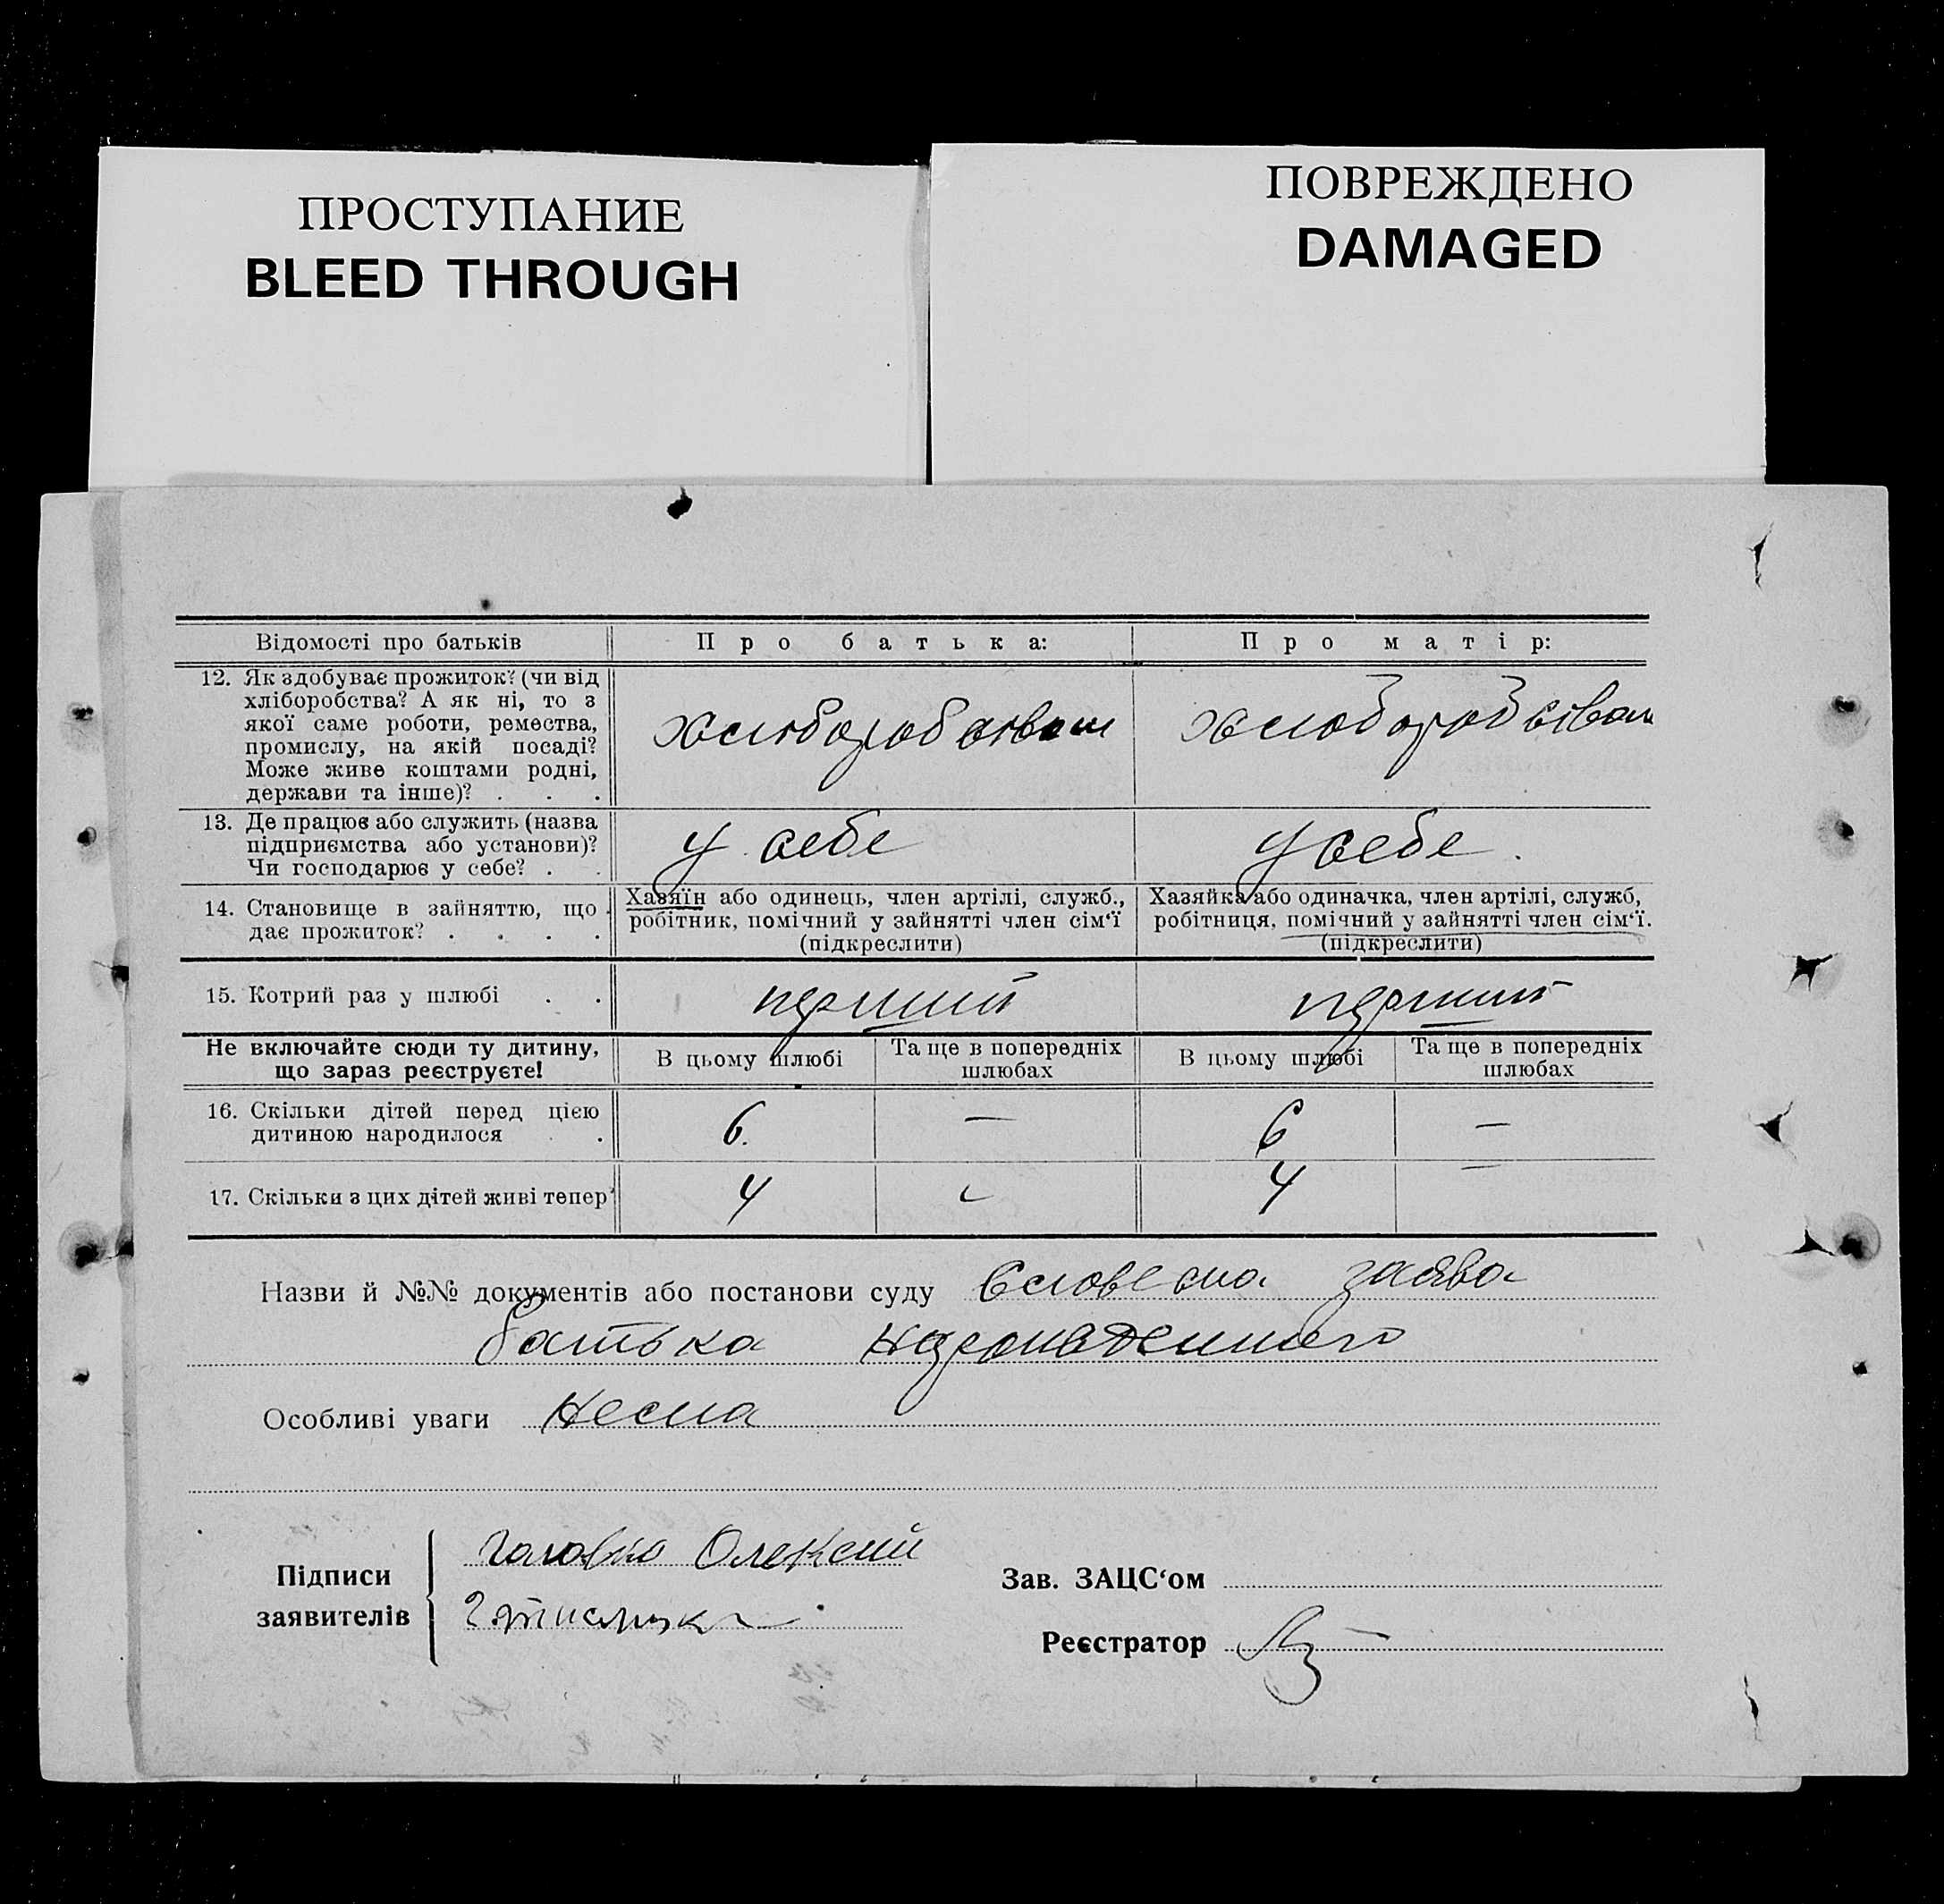 ПРОСТУПАНИЕ
BLEED THROUGH
ПОВРЕЖДЕНО
DAMAGED
Відомості про батьків
Про батька:
Про матір:
12. Як здобуває прожиток? (чи від
хліборобства? А як ні, то з
якої саме роботи, ремества,
промислу, на якій посаді?
Може живе коштами родні,
держави та інше)? . . .
хліборобством
хліборобством
13. Де працює або служить (назва
підприємства або установи)?
Чи господарює у себе? . .
у себе
у себе.
14. Становище в зайняттю, що
дає прожиток? . . . .
Хазяїн або одинець, член артілі, служб.,
робітник, помічний у зайнятті член сім‘ї
(підкреслити)
Хазяйка або одиначка, член артілі, служб,
робітниця, помічний у зайнятті член сім‘ї.
(підкреслити)
15. Котрий раз у шлюбі . .
перший
перший
Не включайте сюди ту дитину,
що зараз реєструєте!
В цьому шлюбі
Та ще в попередніх
шлюбах
В цьому шлюбі
Та ще в попередніх
шлюбах
16. Скільки дітей перед цією
дитиною народилося . .
6.
—
6
—
17. Скільки з цих дітей живі тепер
4
4
—
Назви й №№ документів або постанови суду Словесна заява
батька
Особливі уваги Несма
Підписи
заявителів
Головко Олексій
Зав. ЗАЦС‘ом
Реєстратор